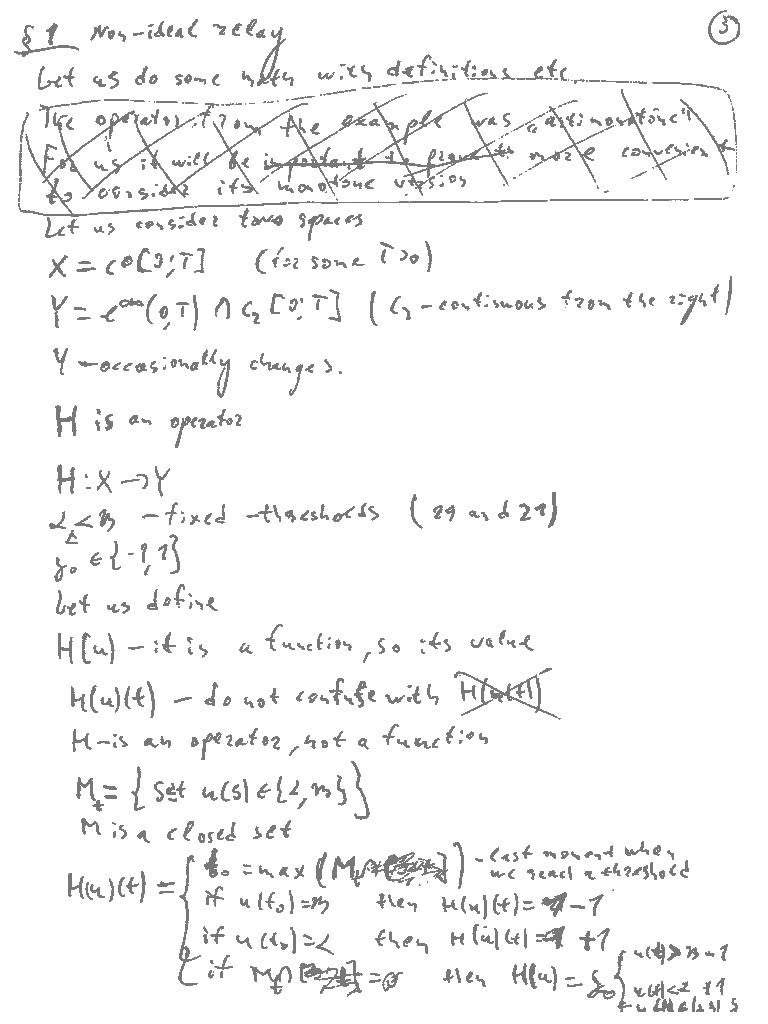 ③
§ 1 Non-ideal relay
Let us do some math with definitions etc.
The operator from the example was antimonotone
For us it will be important to prove to more convenient
to consider its monotone version
Let us consider two spaces
X = C⁰[0;T] (for some T>0)
Y = L^∞(0,T) ∩ C_r[0;T] (C_r - continuous from the right)
Y - occasionally changes.
H is an operator
H: X → Y
α < β - fixed thresholds (19 and 21)
y₀ ∈ {-1,1}
Let us define
H(u) - it is a function, so its value
H(u)(t) - do not confuse with H(u(t))
H - is an operator, not a function
M_t = { s≤t u(s) ∈ {α, β} }
M is a closed set
H(u)(t) = { t₀ = max (M_t) - last moment when we reach a threshold
if u(t₀)=β then H(u)(t)= -1
if u(t₀)=α then H(u)(t)= +1
if M_t = ∅ then H(u) = y₀ {